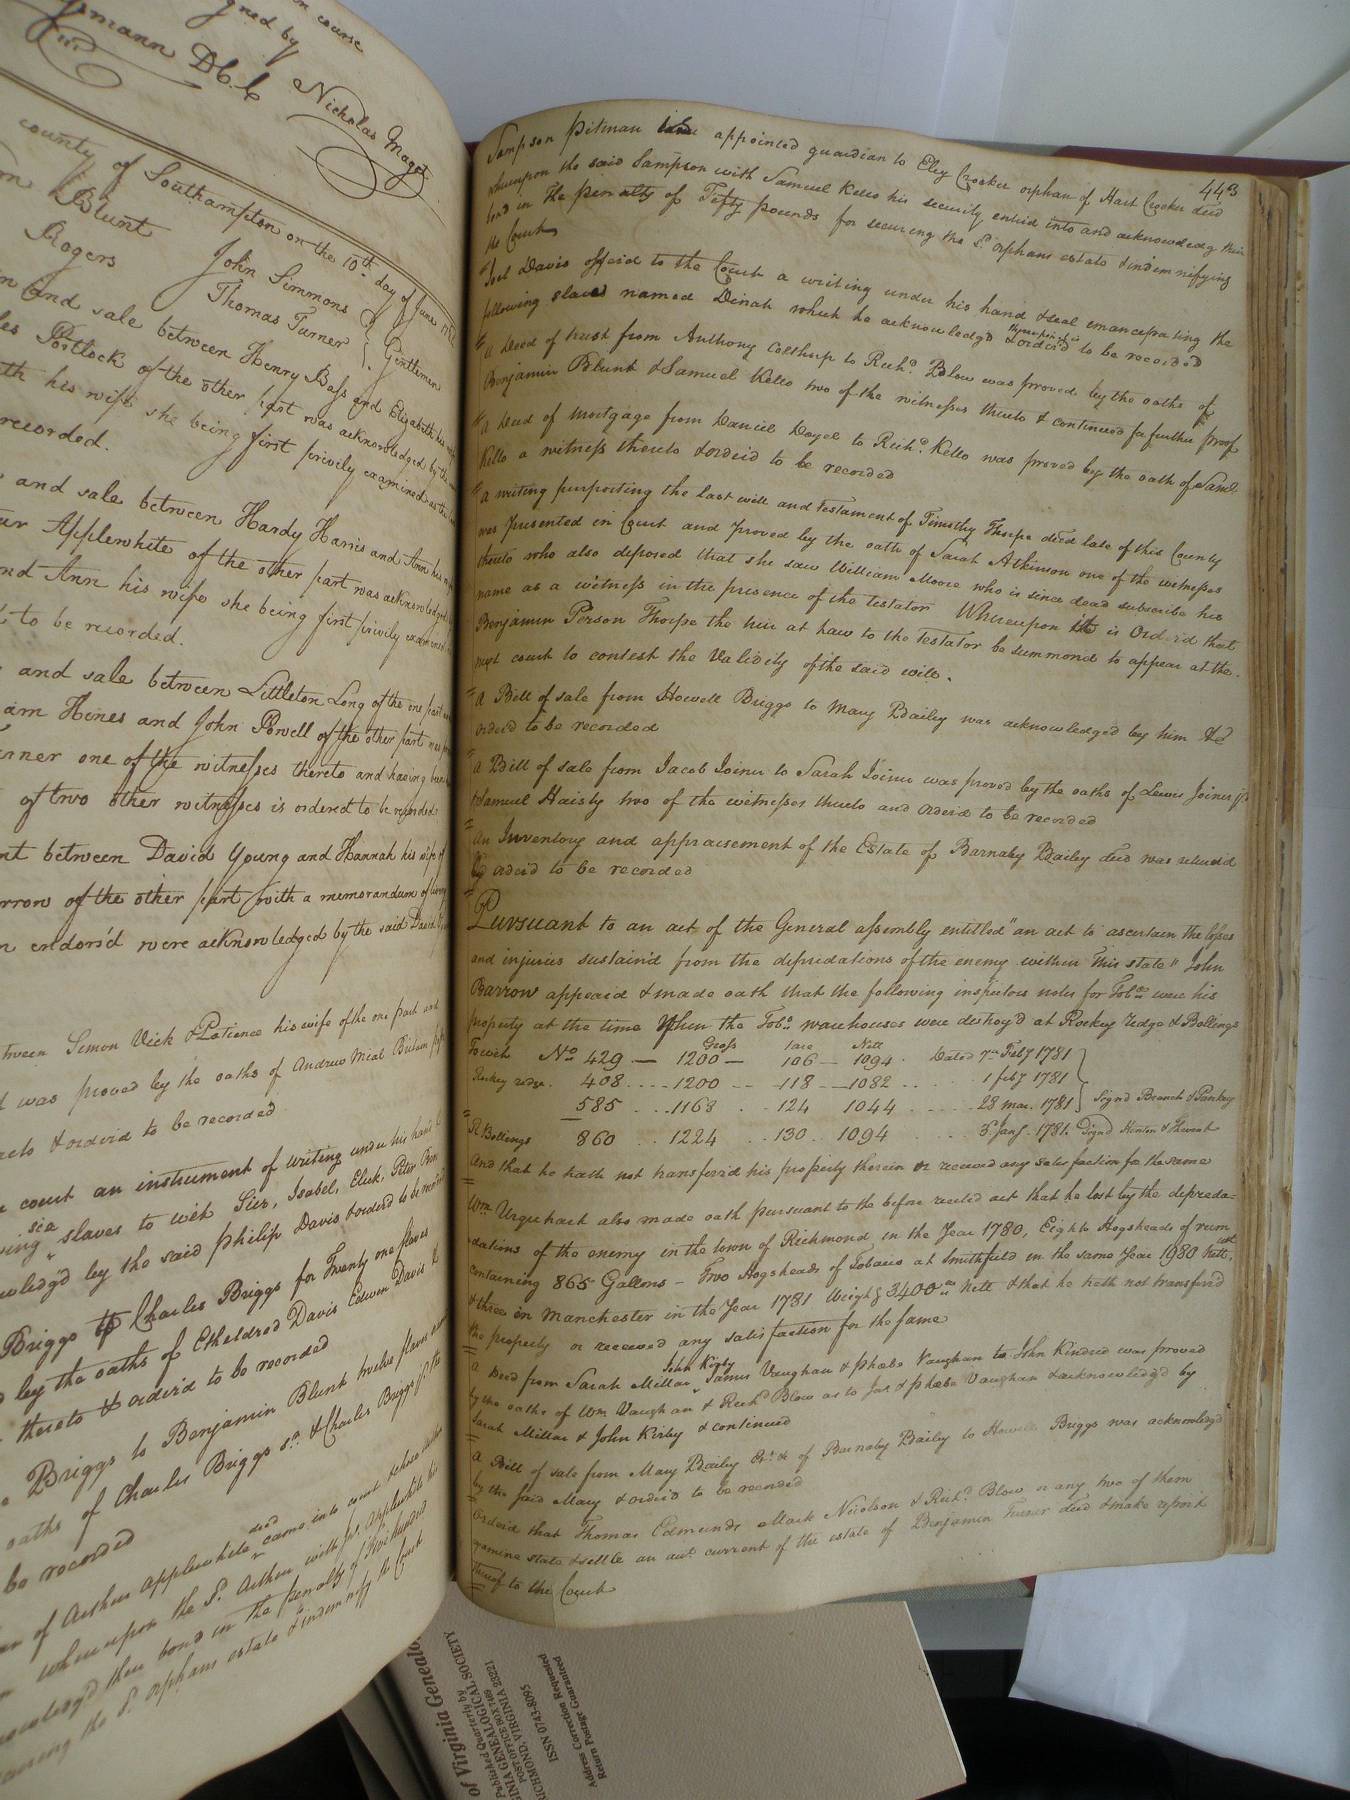 in course
gned by
Nicholas Maget
county of Southampton on the 10th day of June
Blunt John Simmons
Rogers Thomas Turner } Gentlemen
and sale between Henry Bass and Elizabeth his
Portlock of the other part was acknowledged by the
his wife she being first privily examined as the
recorded.
and sale between Hardy Harris and Ann his
Applewhite of the other part was acknowledged
nd Ann his wife she being first privily examined
to be recorded.
and sale between Littleton Long of the one part
am Hines and John Powell of the other part was
one of the witnesses thereto and having been
of two other witnesses is ordered to be recorded
nt between David Young and Hannah his wife of
rrow of the other part with a memorandum of livery
endors'd were acknowledged by the said David
tween Simon Vick & Patience his wife of the one part and
was proved by the oaths of Andrew Mial Britain
& orderd to be recorded
court an instrument of writing under his hand
six
ing ^ slaves to wit Isabel, Peter
wledg'd by the said Philip Davis & orderd to be recorded
Briggs to Charles Briggs for Twenty one slaves
by the oaths of Etheldred Davis Edwin Davis
thereto & order'd to be recorded
Briggs to Benjamin Blunt twelve slaves
oaths of Charles Briggs sr. & Charles Briggs jr.
be recorded
decd
of Arthur Applewhite ^ came into court
whereupon the sd. Arthur with Applewhite his
their bond in the penalty of five hundred
the sd. orphans estate & indemnify the Court
443
Sampson Pitman appointed guardian to Ely Crocker orphan of Hart Crocker decd
whereupon the said Sampson with Samuel Kello his security enter'd into and acknowledg their
bond in the penalty of Fifty pounds for securing the sd. orphans estate & indemnifying
the Court
Joel Davis offerd to the Court a writing under his hand & seal emancipating the
following slaves named Dinah which he acknowledg'd & order'd to be recorded
a Deed of trust from Anthony Colthup to Richd. Blow was proved by the oaths of
Benjamin Blunt & Samuel Kello two of the witnesses thereto & continued for further proof
a Deed of mortgage from Daniel Doyel to Richd. Kello was proved by the oath of Saml.
Kello a witness thereto & order'd to be recorded
a writing purporting the last will and Testament of Timothy Thorpe decd late of this County
was presented in Court and proved by the oath of Sarah Atkinson one of the witnesses
thereto who also deposed that she saw William Moore who is since dead subscribe his
name as a witness in the presence of the testator Whereupon it is Orderd that
Benjamin Person Thorpe the heir at Law to the Testator be summond to appear at the
next court to contest the Validity of the said will.
a Bill of sale from Howell Briggs to Mary Bailey was acknowledged by him &
order'd to be recorded
a Bill of sale from Jacob Joiner to Sarah Joiner was proved by the oaths of Lewis Joiner jr
& Samuel Haisty two of the witnesses thereto and orderd to be recorded
an Inventory and appraisement of the Estate of Barnaby Bailey decd was returnd
& orderd to be recorded
Pursuant to an act of the General assembly entitled "an act to ascertain the losses
and injuries sustain'd from the depredations of the enemy within this state" John
Barrow appeard & made oath that the following inspectors notes for Tobo. were his
property at the time when the Tobo. warehouses were destroy'd at Rockey redge & Bollings
Gross tare Nett
To wit No 429 — 1200 — 106 — 1094 . Dated 7th Feby 1781
Rockey redge. 408 .... 1200 -- 118 — 1082 .. 1 feby 1781
585 ... 1168 .. 124 1044 .... 28 mar. 1781 } Signd Branch & Pankey
At Bollings 860 .. 1224 .. 130 . 1094 .... 5 Jany. 1781. Signd
and that he hath not transferrd his property therein or received any satisfaction for the same
Wm Urquhart also made oath pursuant to the before recited act that he lost by the depreda-
dations of the enemy in the town of Richmond in the Year 1780, Eight Hogsheads of rum
containing 865 Gallons - Two Hogsheads of Tobacco at Smithfield in the same Year 1980 Nett,
& three in Manchester in the Year 1781 Weighg 3400 Nett & that he hath not transferrd
the property or received any satisfaction for the same
John Kirby
a Deed from Sarah Millar ^ James Vaughan & Phoebe Vaughan to John Kindred was proved
by the oaths of Wm Vaughan & Richd Blow as to Jas. & Phoebe Vaughan & acknowledg'd by
Sarah Millar & John Kirby & continued
a Bill of sale from Mary Bailey & of Barnaby Bailey to Howell Briggs was acknowledg'd
by the said Mary & order'd to be recorded
Orderd that Thomas Edmunds Mark Nicolson & Richd. Blow or any two of them
examine state & settle an acct. current of the estate of Benjamin Turner decd & make report
thereof to the Court
of Virginia Genealo
Published Quarterly by
GINIA GENEALOGICAL SOCIETY
POST OFFICE BOX 7469
RICHMOND, VIRGINIA 23221
ISSN 0743-8095
Address Correction Requested
Return Postage Guaranteed